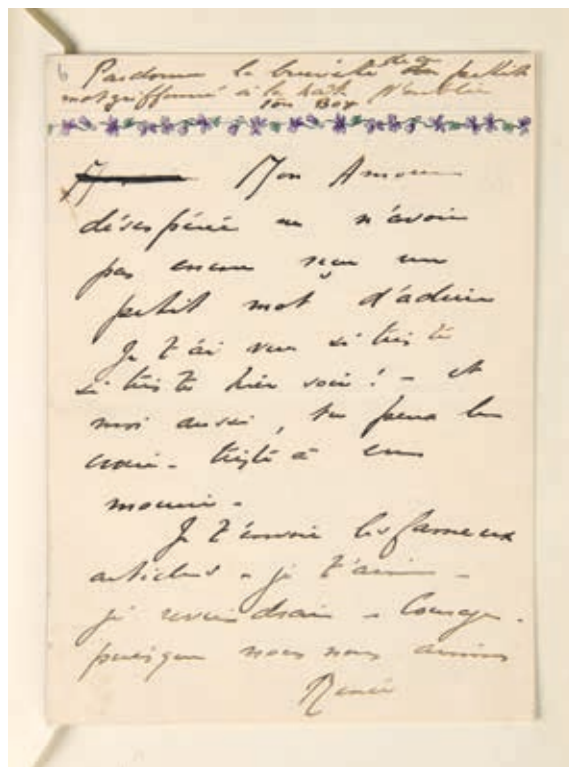 6 Pardonne la brièveté de ce petit
mot griffonné à la hâte N'oublie
ton Boy
Mon Amour
désespéré de n'avoir
pas encore reçu un
petit mot d'adieu
Je t'ai vue si triste
si triste hier soir ! – et
moi aussi, tu peux le
croire – triste à en
mourir –
Je t'envoie les fameux
articles – je t'aime –
je reviendrai – Courage –
puisque nous nous aimons
Renée